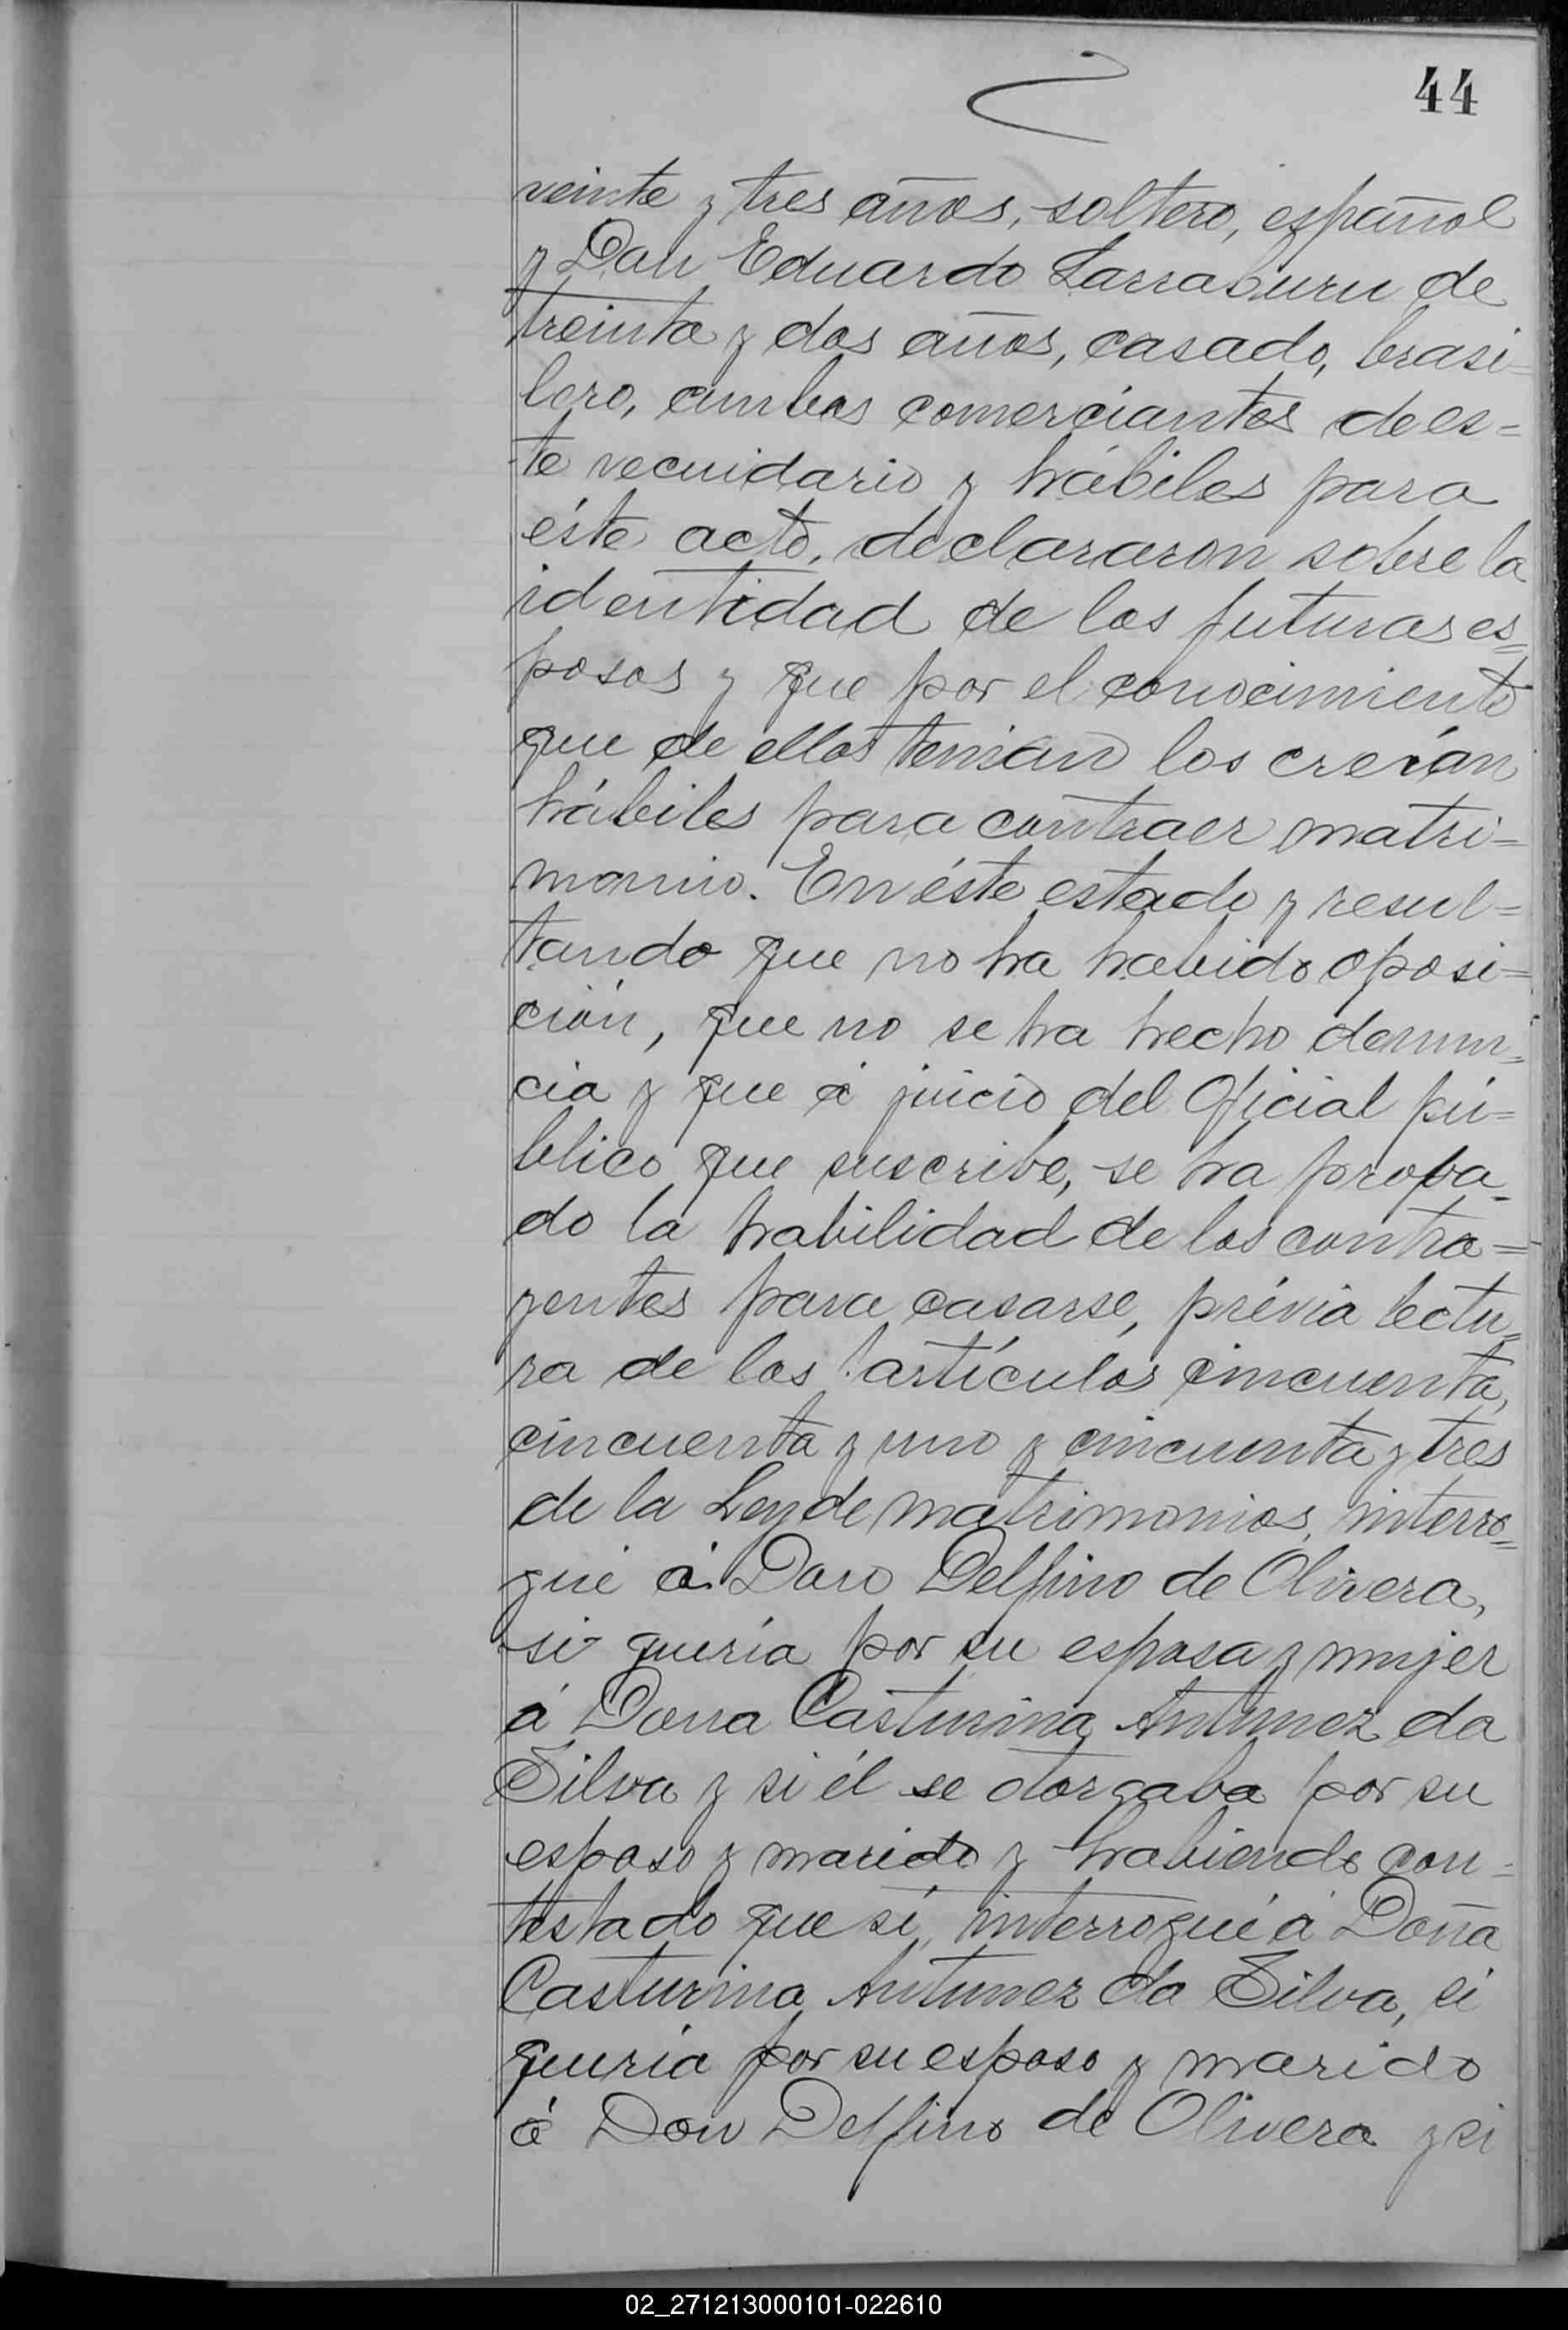 44
veinte y tres años, soltero, español
y Don Eduardo Larraburu de
treinta y dos años, casado, brasi-
lero, ambos comerciantes de es=
te vecindario y hábiles para
éste acto, declararon sobre la
identidad de los futuros es=
posos y que por el conocimiento
que de ellos tenian los creían
hábiles para contraer matri=
monio. En éste estado y resul=
tando que no ha habido oposi=
ción, que no se ha hecho denun=
cia y que á juicio del Oficial pú=
blico que suscribe, se ha proba-
do la habilidad de los contra=
yentes para casarse, prévia lectu=
ra de los artículos cincuenta,
cincuenta y uno y cincuenta y tres
de la Ley de matrimonios, interro=
gué á Don Delfino de Olivera,
si quería por su esposa y mujer
á Dona Casturina Antunez da
Silva y si él se otorgaba por su
esposo y marido y habiendo con=
testado que sí, interrogué á Doña
Casturina Antunez da Silva, si
quería por su esposo y marido
á Don Delfino de Olivera y si
02_271213000101-022610